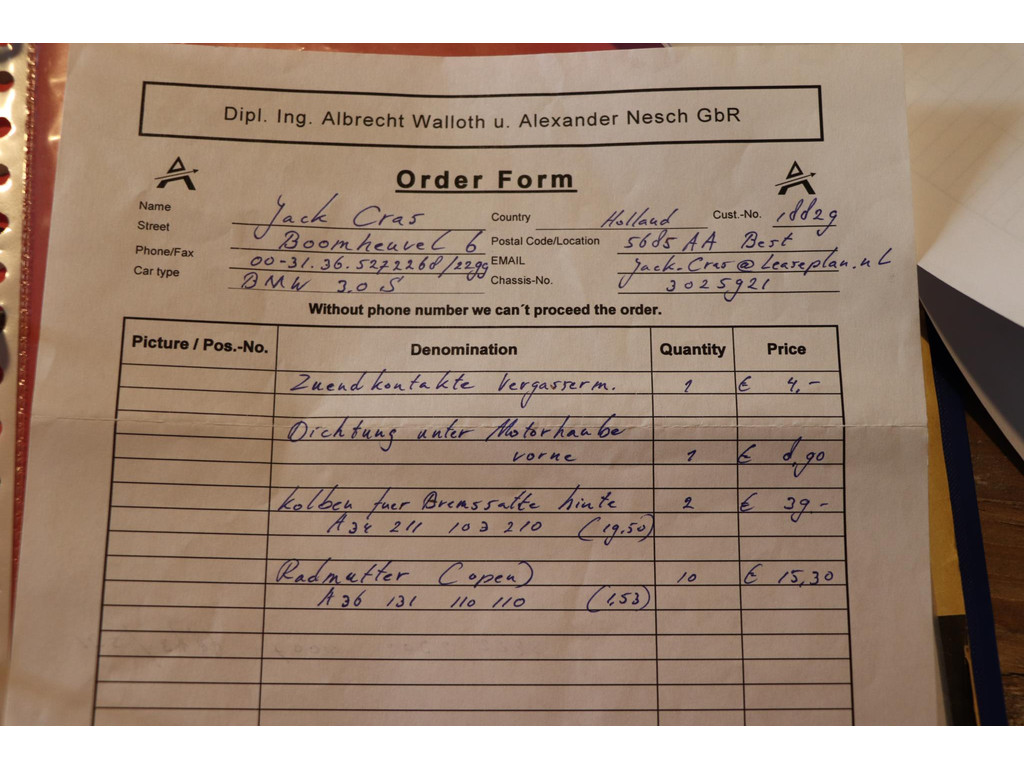 Dipl. Ing. Albrecht Walloth u. Alexander Nesch GbR
Order Form
Name Jack Cras Country Holland Cust.-No. 18829
Street Boomheuvel 6 Postal Code/Location 5685 AA Best
Phone/Fax 00-31.36.5272268/2299 EMAIL Jack.Cras@Leaseplan.nl
Car type BMW 3.0 S Chassis-No. 3025921
Without phone number we can´t proceed the order.
Picture / Pos.-No. Denomination Quantity Price
Zuendkontakte Vergasserm. 1 € 4,-
Dichtung unter Motorhaube
vorne 1 € 8,90
Kolben fuer Bremssatte hinte 2 € 39.-
A34 211 103 210 (19.50)
Radmutter (open) 10 € 15,30
A36 131 110 110 (1,53)